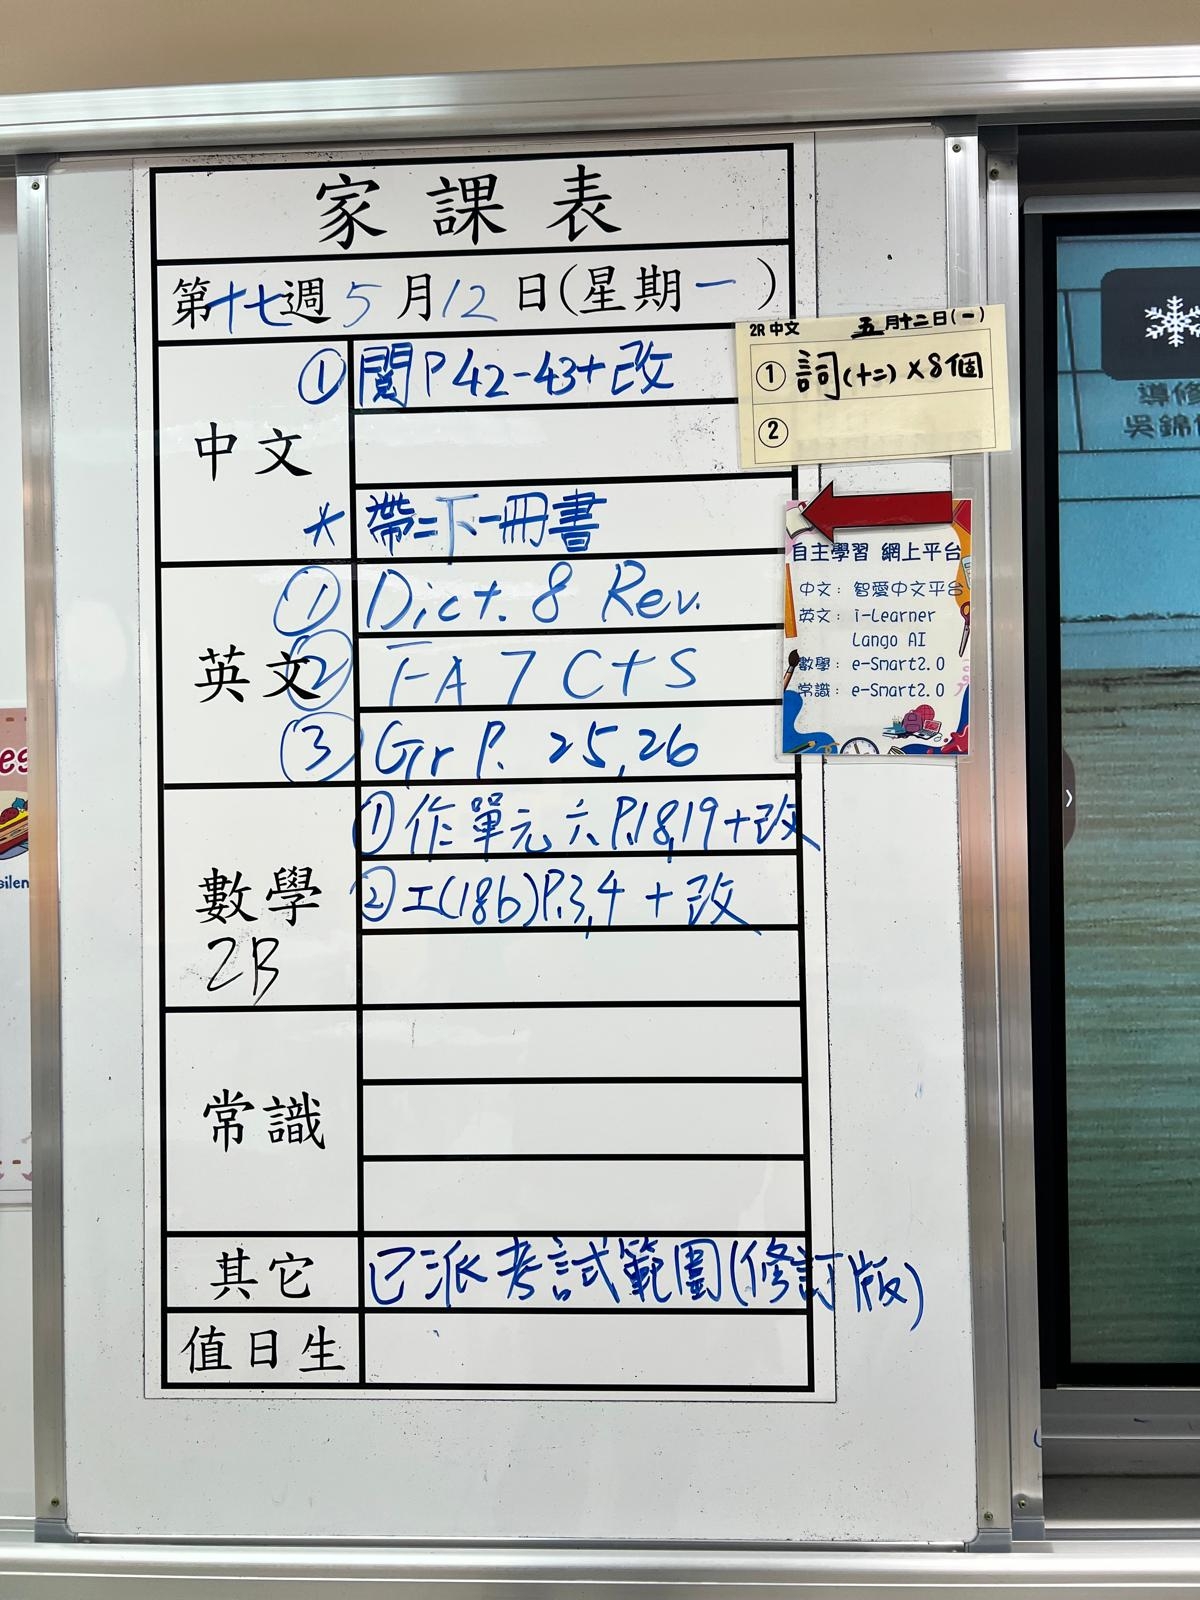 家課表
第十七週 5月12日(星期一)
中文
① 閱P42-43+改
* 帶=下一冊書
英文
① Dict. 8 Rev.
② FA 7 C+S
③ Gr P. 25,26
數學
2B
① 作單元六P.18,19+改
② 工(18b)P.3,4+改
常識
其它
已派考試範圍(修訂版)
值日生
2R 中文 五月十二日(一)
① 詞(十二)×8個
②
自主學習 網上平台
中文：智愛中文平台
英文：i-Learner
Lango AI
數學：e-Smart2.0
常識：e-Smart2.0